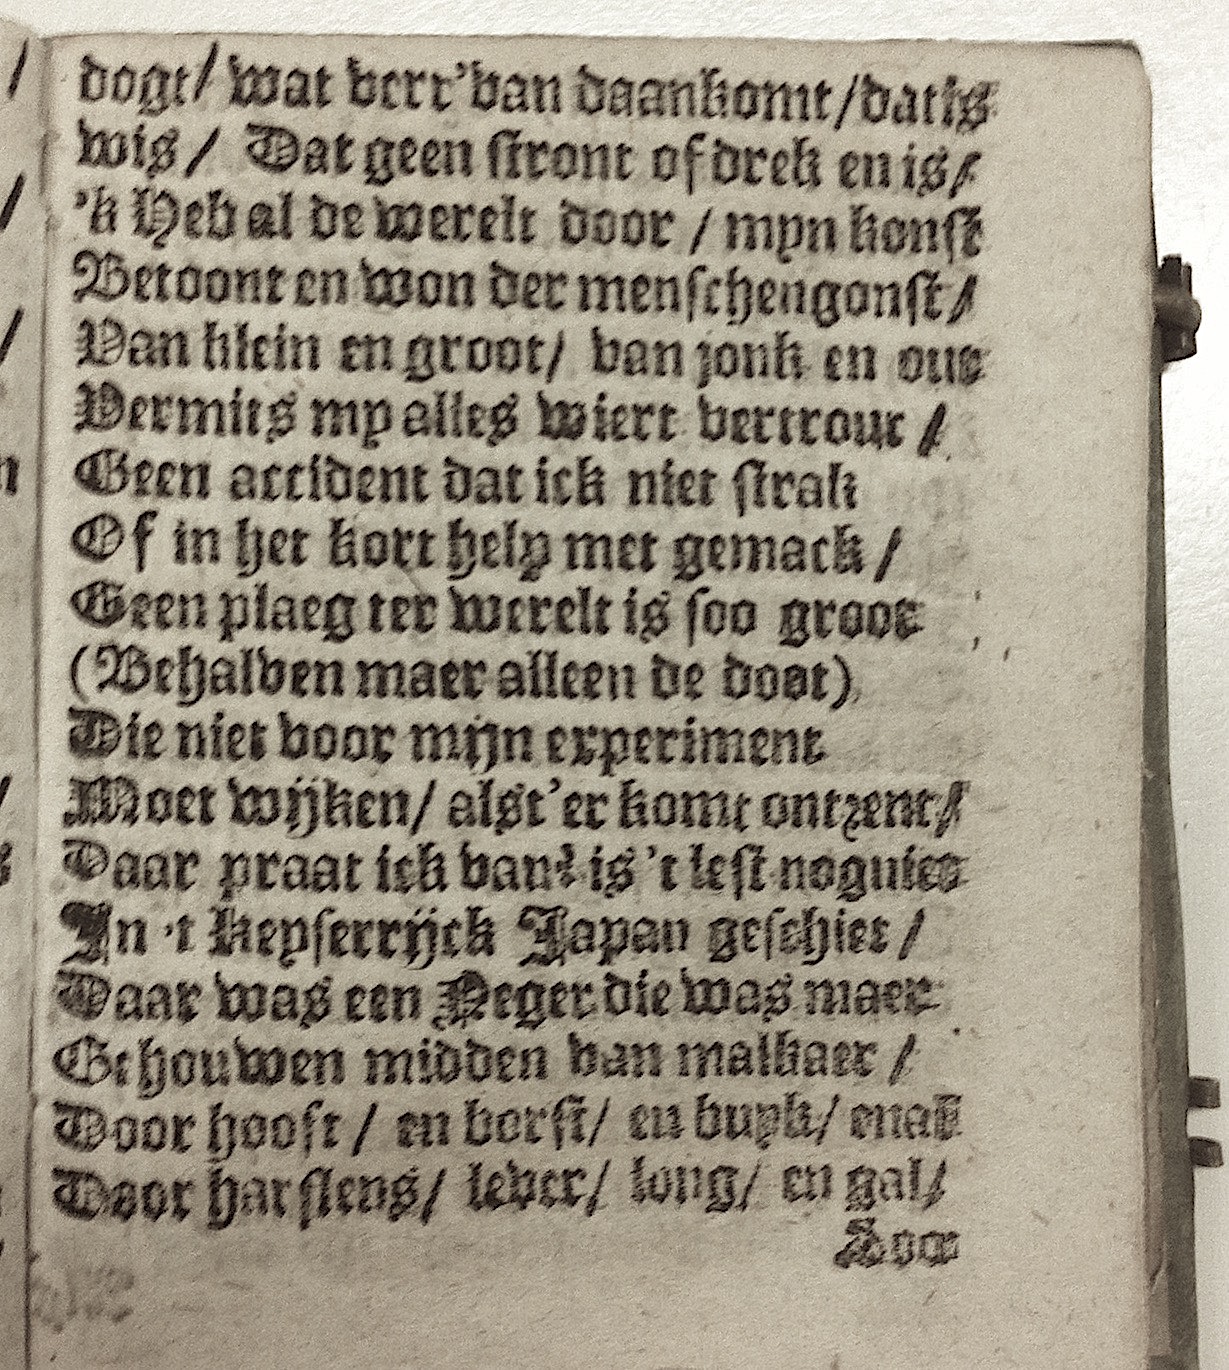 dogt/ wat verr' van daan komt/ dat is
wis/ Dat geen stront of drek en is/
'k Heb al de werelt door / myn konst
Betoont en won der menschen gonst/
Van klein en groot/ van jonk en out
Vermits my alles wiert vertrout /
Geen accident dat ick niet strak
Of in het kort help met gemack /
Geen plaeg ter werelt is soo groot
(Behalven maer alleen de doot)
Die niet voor mijn experiment
Moet wijken/ alst'er komt ontzent/
Daar praat ick van? is 't lest nog niet
In 't Keyserrijck Japan geschiet /
Daar was een Neger die was maer
Gehouwen midden van malkaer /
Door hooft / en borst/ en buyk/ en al
Door harslens/ lever/ long/ en gal/
Soo